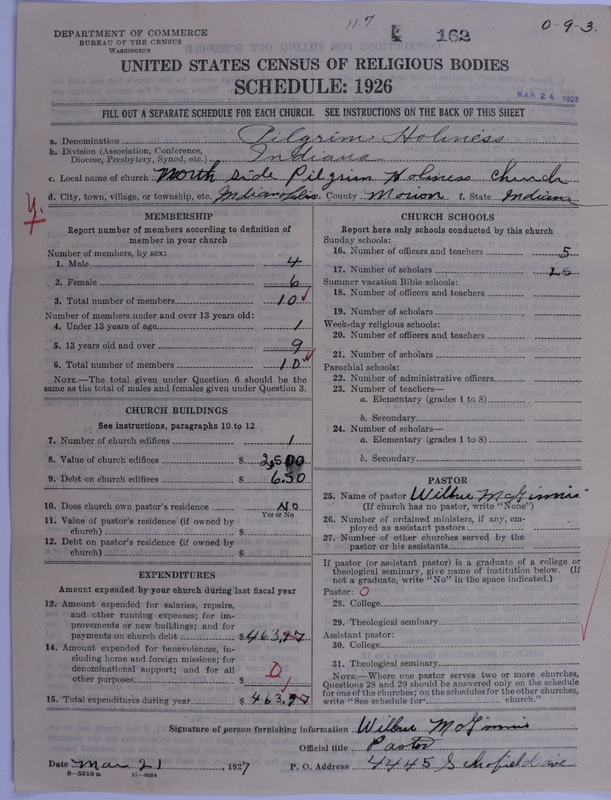 11-7
162
0-9-3.
DEPARTMENT OF COMMERCE
BUREAU OF THE CENSUS
WASHINGTON
UNITED STATES CENSUS OF RELIGIOUS BODIES
SCHEDULE: 1926
MAR 24 1927
FILL OUT A SEPARATE SCHEDULE FOR EACH CHURCH. SEE INSTRUCTIONS ON THE BACK OF THIS SHEET
a. Denomination Pilgrim Holiness
b. Division (Association, Conference, Diocese, Presbytery, Synod, etc.) Indiana
c. Local name of church North Side Pilgrim Holiness Church
d. City, town, village, or township, etc. Indianapolis County Marion f. State Indiana
MEMBERSHIP
Report number of members according to definition of member in your church
Number of members, by sex:
1. Male 4
2. Female 6
3. Total number of members 10
Number of members under and over 13 years old:
4. Under 13 years of age 1
5. 13 years old and over 9
6. Total number of members 10
NOTE.—The total given under Question 6 should be the same as the total of males and females given under Question 3.
CHURCH BUILDINGS
See instructions, paragraphs 10 to 12
7. Number of church edifices 1
8. Value of church edifices $ 2,500
9. Debt on church edifices $ 650
10. Does church own pastor's residence No
Yes or No
11. Value of pastor's residence (if owned by church) $
12. Debt on pastor's residence (if owned by church) $
EXPENDITURES
Amount expended by your church during last fiscal year
13. Amount expended for salaries, repairs, and other running expenses; for improvements or new buildings; and for payments on church debt $ 463.97
14. Amount expended for benevolences, including home and foreign missions; for denominational support; and for all other purposes $ 0
15. Total expenditures during year $ 463.97
CHURCH SCHOOLS
Report here only schools conducted by this church
Sunday schools:
16. Number of officers and teachers 5
17. Number of scholars 25
Summer vacation Bible schools:
18. Number of officers and teachers
19. Number of scholars
Week-day religious schools:
20. Number of officers and teachers
21. Number of scholars
Parochial schools:
22. Number of administrative officers
23. Number of teachers—
a. Elementary (grades 1 to 8)
b. Secondary
24. Number of scholars—
a. Elementary (grades 1 to 8)
b. Secondary
PASTOR
25. Name of pastor Wilbur McGinnis
(If church has no pastor, write "None")
26. Number of ordained ministers, if any, employed as assistant pastors
27. Number of other churches served by the pastor or his assistants
If pastor (or assistant pastor) is a graduate of a college or theological seminary, give name of institution below. (If not a graduate, write "No" in the space indicated.)
Pastor: 0
28. College
29. Theological seminary
Assistant pastor:
30. College
31. Theological seminary
NOTE.—Where one pastor serves two or more churches, Questions 28 and 29 should be answered only on the schedule for one of the churches; on the schedules for the other churches, write "See schedule for church."
Signature of person furnishing information Wilbur McGinnis
Official title Pastor
Date Mar 21, 1927 P. O. Address 4445 Schofield ave
8—5518a 11—9554